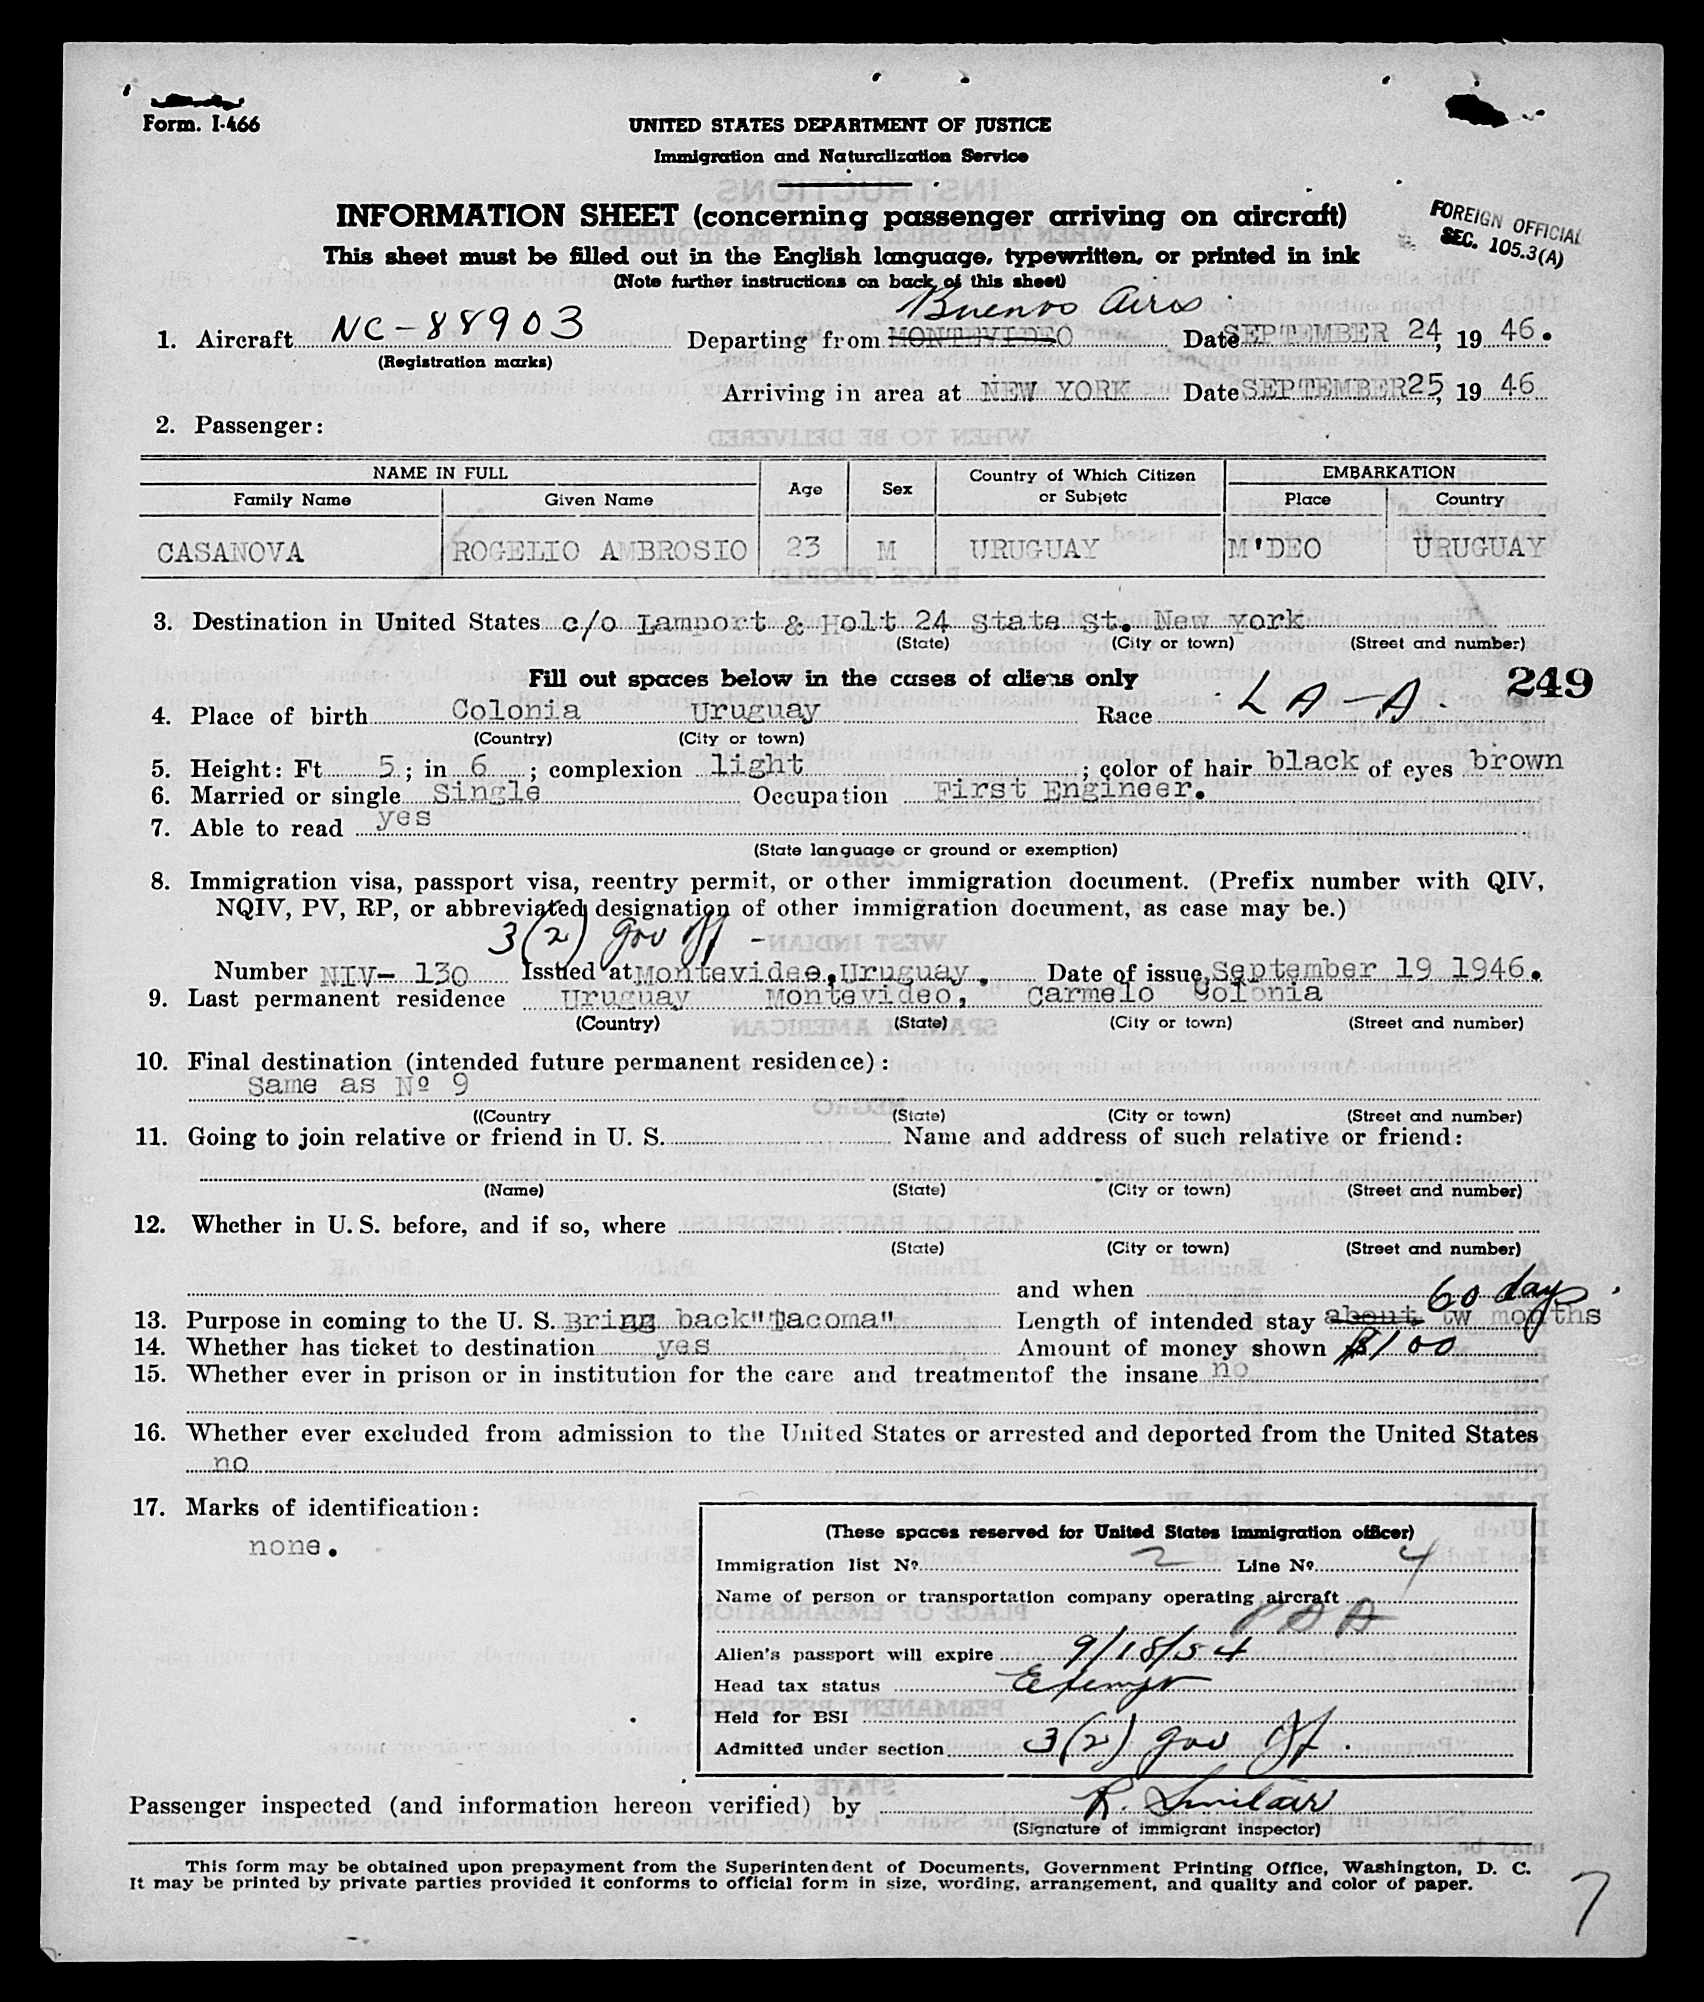 Form. I-466
UNITED STATES DEPARTMENT OF JUSTICE
Immigration and Naturalization Service
INFORMATION SHEET (concerning passenger arriving on aircraft)
FOREIGN OFFICIAL
SEC. 105.3(A)
This sheet must be filled out in the English language, typewritten, or printed in ink
(Note further instructions on back of this sheet)
Buenos Aires
1. Aircraft NC-88903 Departing from MONTEVIDEO Date SEPTEMBER 24, 19 46.
(Registration marks)
Arriving in area at NEW YORK Date SEPTEMBER 25, 19 46
2. Passenger:
NAME IN FULL Age Sex Country of Which Citizen or Subjetc EMBARKATION
Family Name Given Name Place Country
CASANOVA ROGELIO AMBROSIO 23 M URUGUAY M'DEO URUGUAY
3. Destination in United States c/o Lamport & Holt 24 State St. New York
(State) (City or town) (Street and number)
Fill out spaces below in the cases of aliens only 249
4. Place of birth Colonia Uruguay Race LA-A
(Country) (City or town)
5. Height: Ft 5; in 6; complexion light; color of hair black of eyes brown
6. Married or single Single Occupation First Engineer.
7. Able to read yes
(State language or ground or exemption)
8. Immigration visa, passport visa, reentry permit, or other immigration document. (Prefix number with QIV,
NQIV, PV, RP, or abbreviated designation of other immigration document, as case may be.)
3(2) gov off -
Number NIV- 130 Issued at Montevideo, Uruguay. Date of issue September 19 1946.
9. Last permanent residence Uruguay Montevideo, Carmelo Colonia
(Country) (State) (City or town) (Street and number)
10. Final destination (intended future permanent residence):
Same as Nº 9
((Country (State) (City or town) (Street and number)
11. Going to join relative or friend in U. S. Name and address of such relative or friend:
(Name) (State) (City or town) (Street and number)
12. Whether in U. S. before, and if so, where
(State) (City or town) (Street and number)
and when
60 days.
13. Purpose in coming to the U. S. Bring back "Tacoma" Length of intended stay about tw months
14. Whether has ticket to destination yes Amount of money shown $100
15. Whether ever in prison or in institution for the care and treatmentof the insane no
16. Whether ever excluded from admission to the United States or arrested and deported from the United States
no
17. Marks of identification:
none.
(These spaces reserved for United States immigration officer)
Immigration list Nº 2 Line Nº 4
Name of person or transportation company operating aircraft
PAA
Alien's passport will expire 9/18/54
Head tax status Exempt
Held for BSI
Admitted under section 3(2) gov off.
Passenger inspected (and information hereon verified) by R. Sinclair
(Signature of immigrant inspector)
This form may be obtained upon prepayment from the Superintendent of Documents, Government Printing Office, Washington, D. C.
It may be printed by private parties provided it conforms to official form in size, wording, arrangement, and quality and color of paper.
7